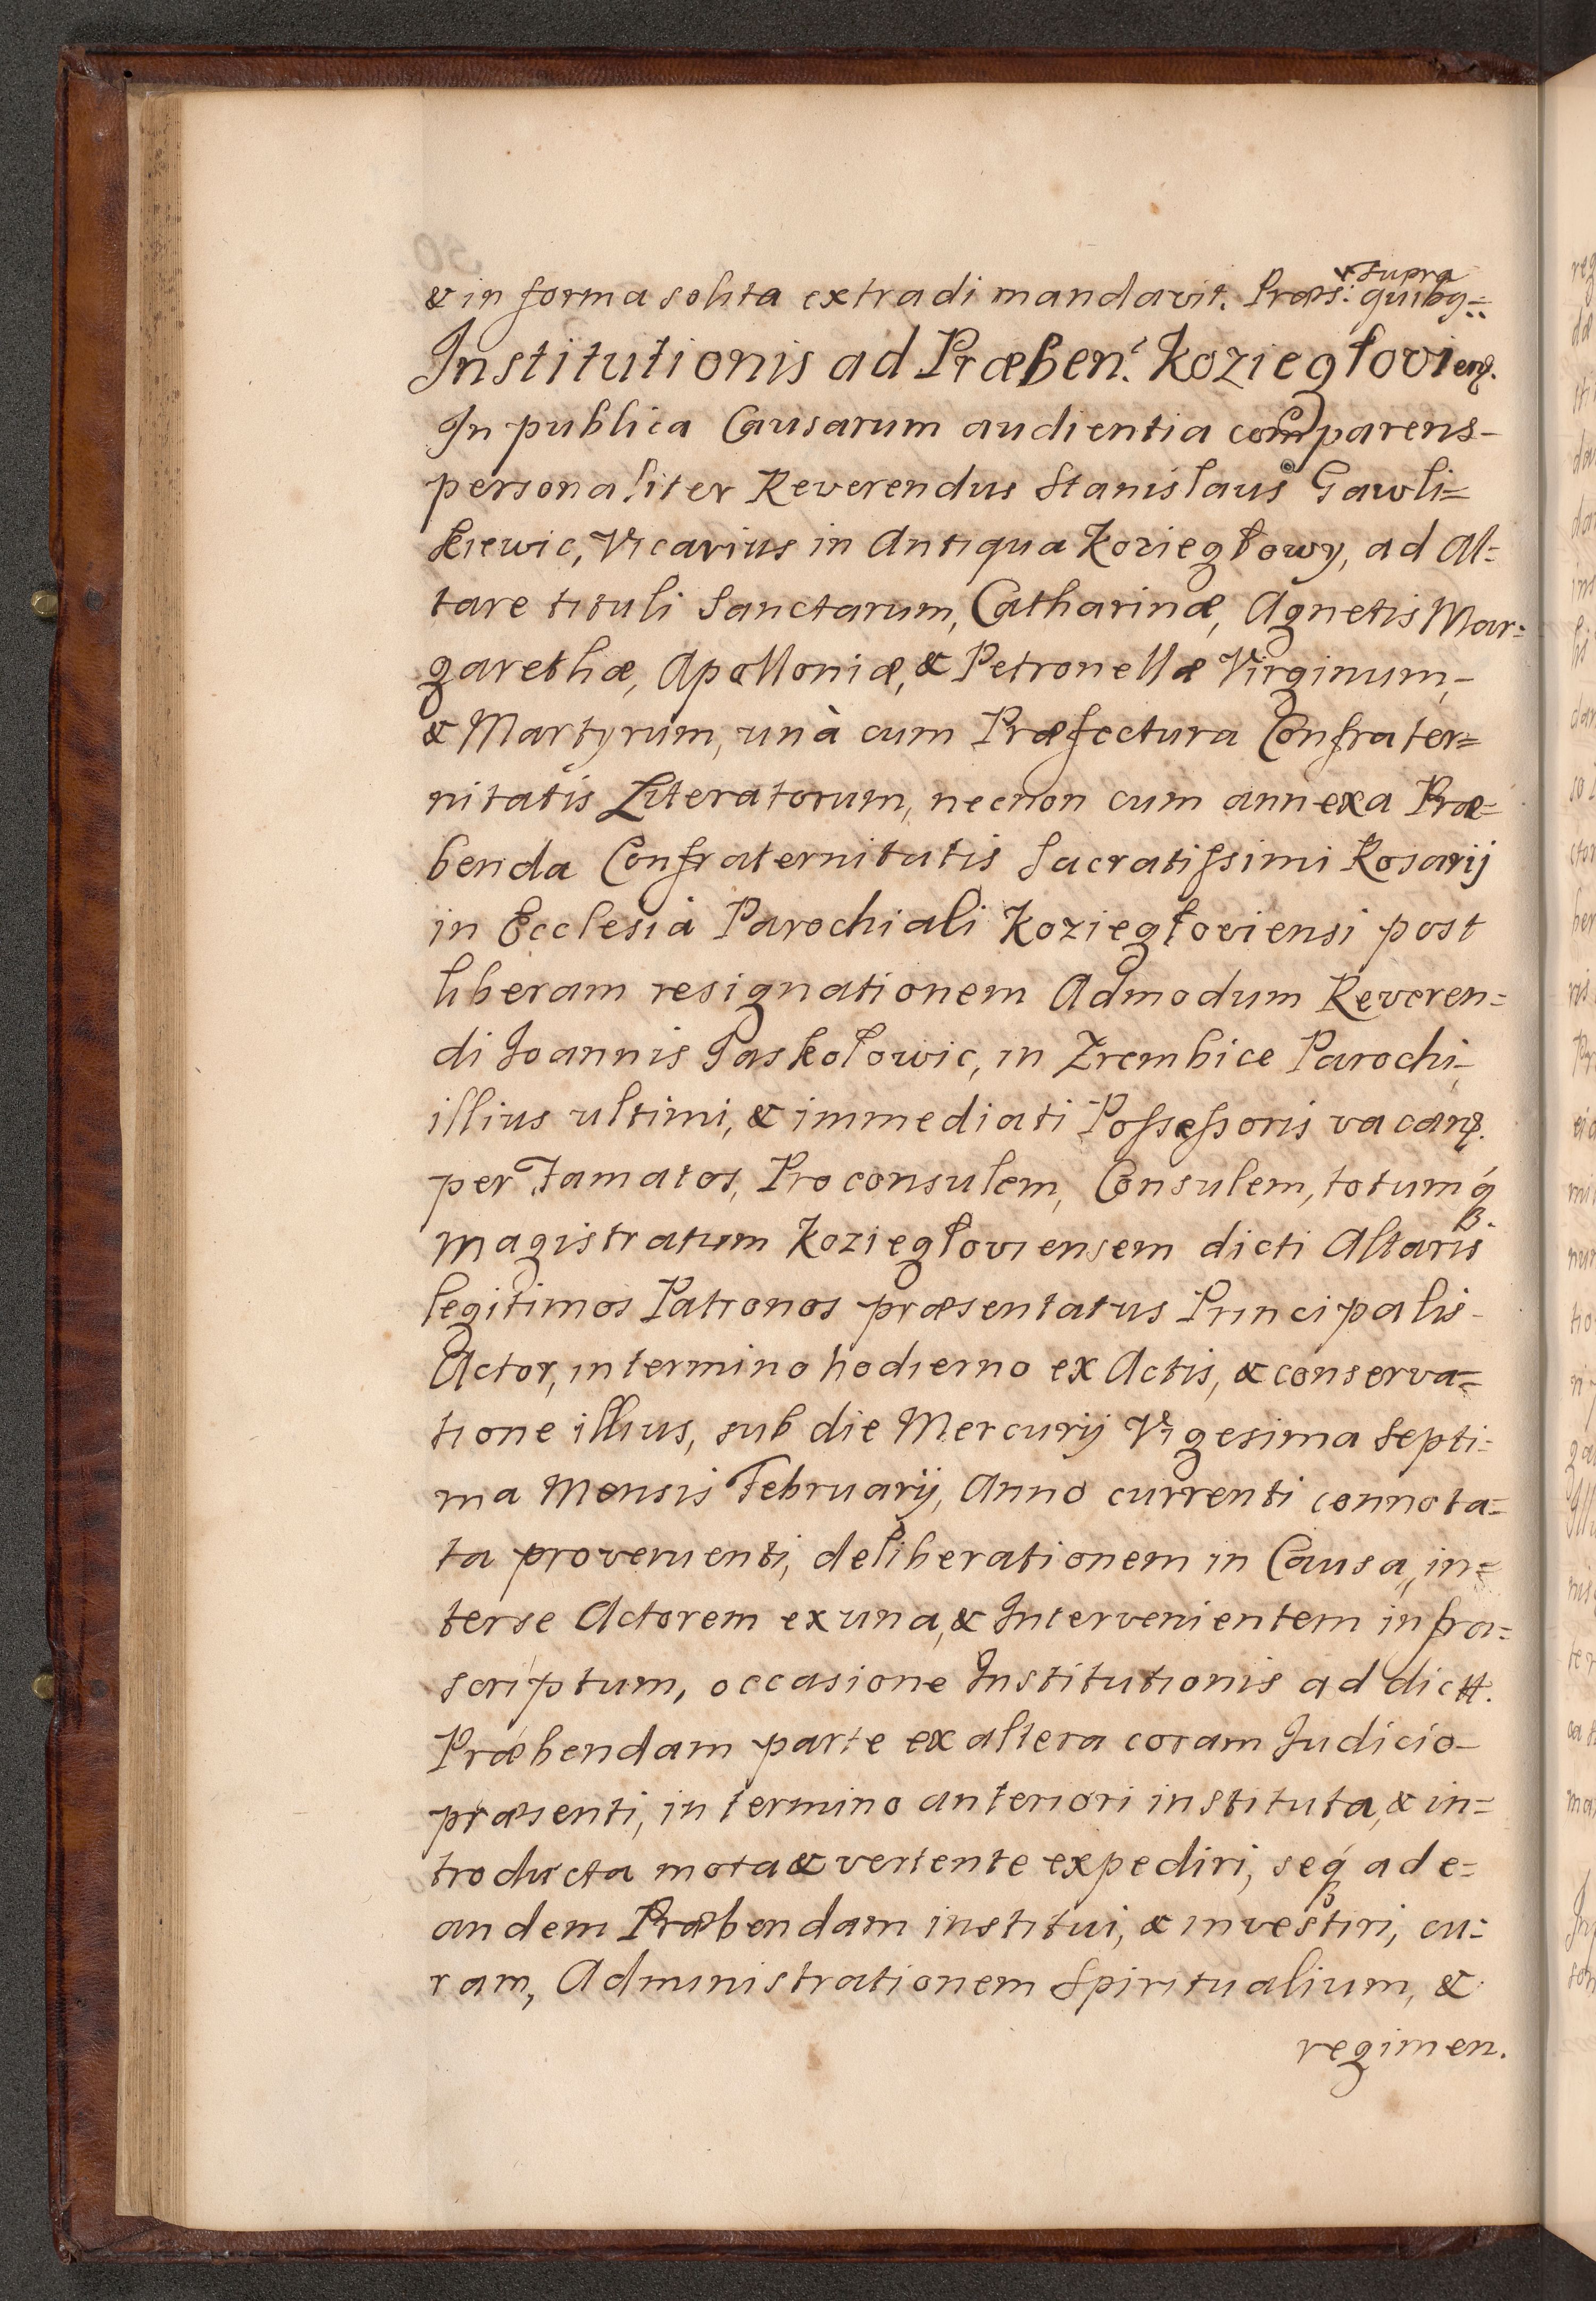 & in forma solita extradi mandavit. Præs: quibq supra
Institutionis ad Præben: Koziegłovien.
In publica Causarum audientia comparens
personaliter Reverendus Stanislaus Gawli=
kiewic, Vicarius in Antiqua Koziegłowy, ad Al=
tare tituli Sanctarum, Catharinæ, Agnetis Mar=
garethæ, Apolloniæ, & Petronellæ Virginum,
& Martyrum, unà cum Præfectura Confrater=
nitatis Literatorum, necnon cum annexa Præ=
benda Confraternitatis Sacratissimi Rosarij
in Ecclesia Parochiali Koziegłoviensi post
liberam resignationem Admodum Reveren=
di Joannis Paskołowic, in Zrembice Parochi,
illius ultimi, & immediati Possessoris vacan.
per Famatos, Proconsulem, Consulem, totumq́
Magistratum Koziegłoviensem dicti Altaris
legitimos Patronos præsentatus Principalis
Actor, in termino hodierno ex Actis, & conserva=
tione illius, sub die Mercurij Vigesima Septi=
ma Mensis Februarij, Anno currenti connota=
ta provenienti, deliberationem in Causa, in=
terse Actorem ex una, & Intervenientem infra=
scriptum, occasione Institutionis ad dictt.
Præbendam parte ex altera coram Judicio
præsenti, in termino anteriori instituta, & in=
troducta mota & vertente expediri, seq́ ad e=
andem Præbendam institui, & investiri, cu=
ram, Administrationem Spiritualium, &
regimen.